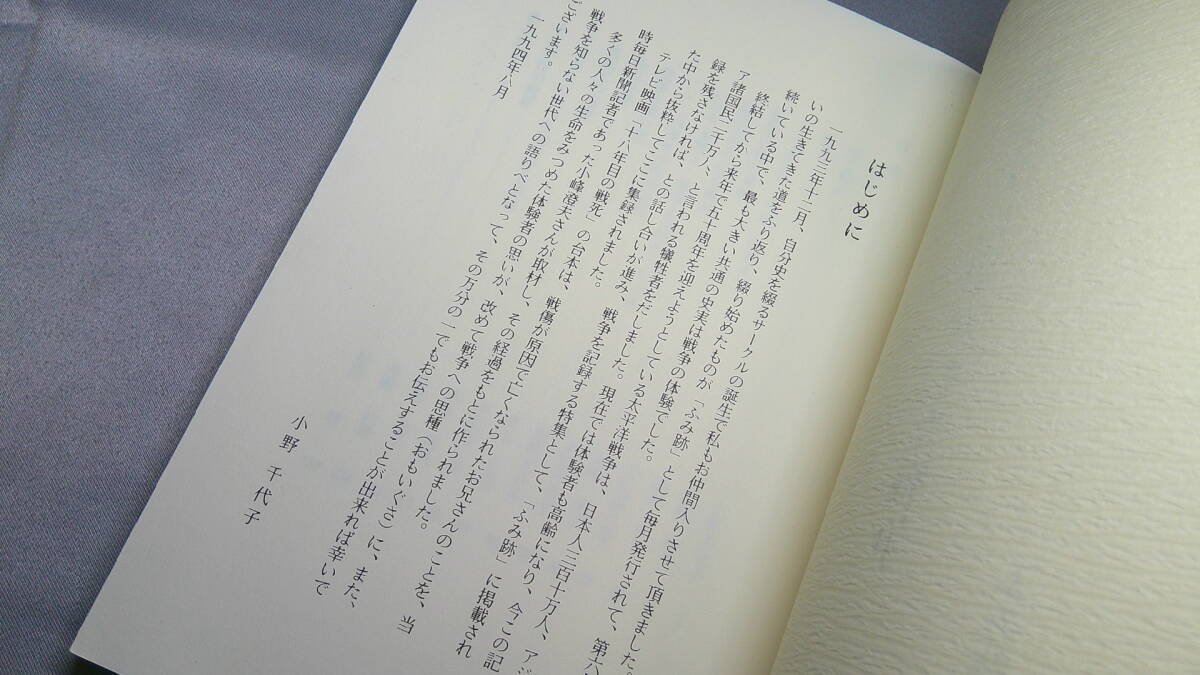 はじめに
一九九三年十二月、自分史を綴るサークルの誕生で私もお仲間入りさせて頂きました。
いの生きてきた道をふり返り、綴り始めたものが「ふみ跡」として毎月発行されて、第六
続いている中で、最も大きい共通の史実は戦争の体験でした。
終結してから来年で五十周年を迎えようとしている太平洋戦争は、日本人三百十万人、アジ
ア諸国民二千万人、と言われる犠牲者をだしました。現在では体験者も高齢になり、今この記
録を残さなければ、との話し合いが進み、戦争を記録する特集として、「ふみ跡」に掲載され
た中から抜粋してここに集録されました。
テレビ映画「十八年目の戦死」の台本は、戦傷が原因で亡くなられたお兄さんのことを、当
時毎日新聞記者であった小峰澄夫さんが取材し、その経過をもとに作られました。
多くの人々の生命をみつめた体験者の思いが、改めて戦争への思種（おもいぐさ）に、また、
戦争を知らない世代への語りべとなって、その万分の一でもお伝えすることが出来れば幸いで
ございます。
一九九四年八月
小野 千代子